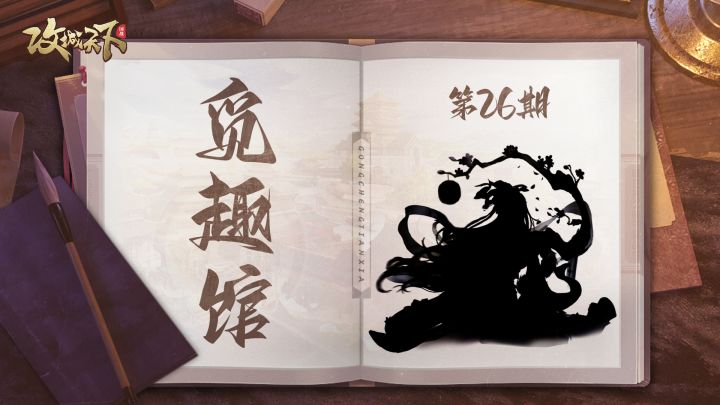 攻城天下
觅趣馆
第26期
GONGCHENGTIANXIA